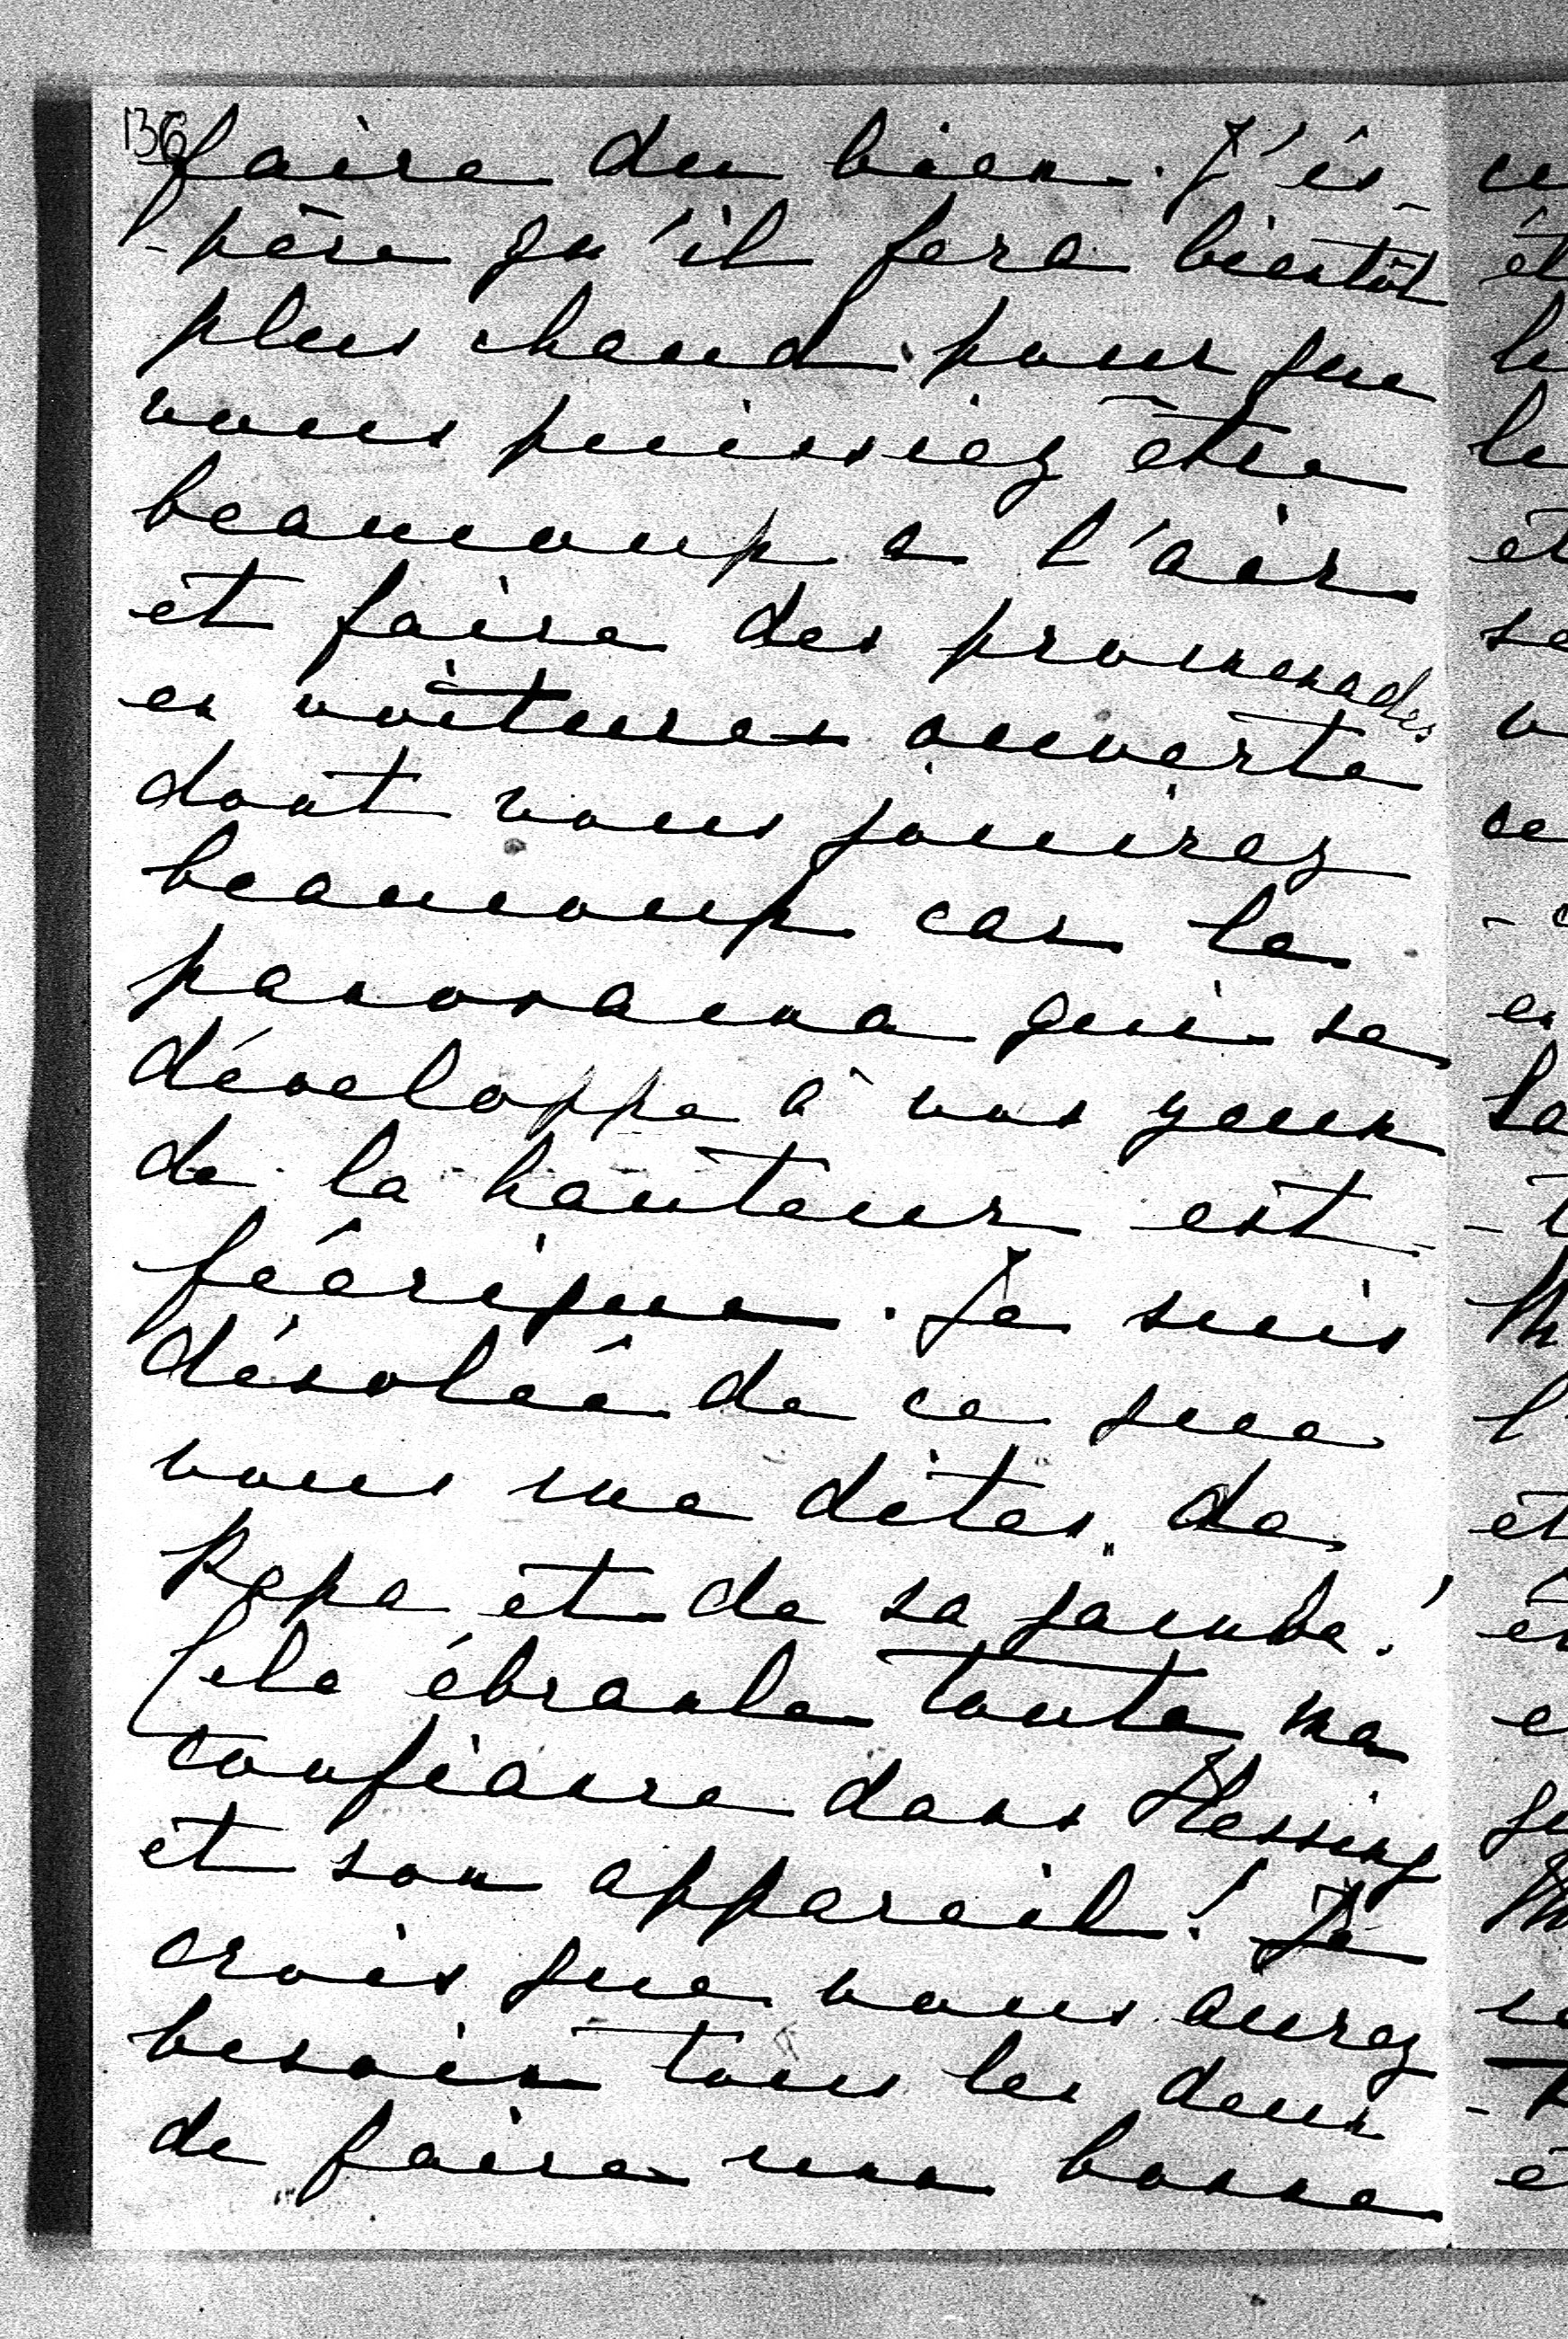 136
faire du bien. J'és-
-père qu'il fera bientôt
plus chaud pour que
vous puissiez être
beaucoup a l'air
et faire des promenades
en voitures ouverte
dont vous jouirez
beaucoup car le
panorama qui se
développe à vos yeux
de la hauteur est
féerique. Je suis
désolée de ce que
vous me dites de
Papa et de sa jambe!
Cela ébranle toute ma
confiance dans Hessing
et son appareil! Je
crois que vous aurez
besoin tous les deux
de faire une bonne